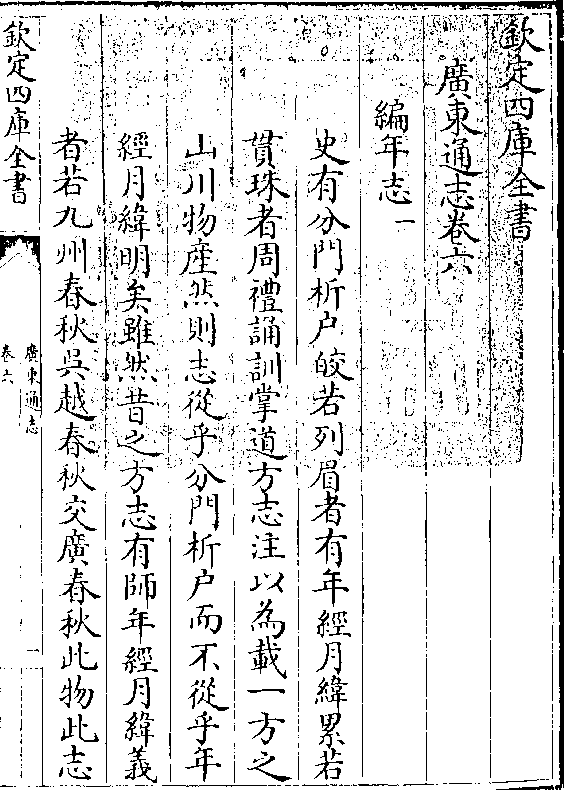 欽定四庫全書
廣東通志卷六
編年志一
史有分門析户皎若列眉者有年經月緯累若
貫珠者周禮誦訓掌道方志注以為載一方之
山川物産然則志從乎分門析户而不從乎年
經月緯明矣雖然昔之方志有師年經月緯義
者若九州春秋吳越春秋交廣春秋此物此志
欽定四庫全書
廣東通志
卷六
一